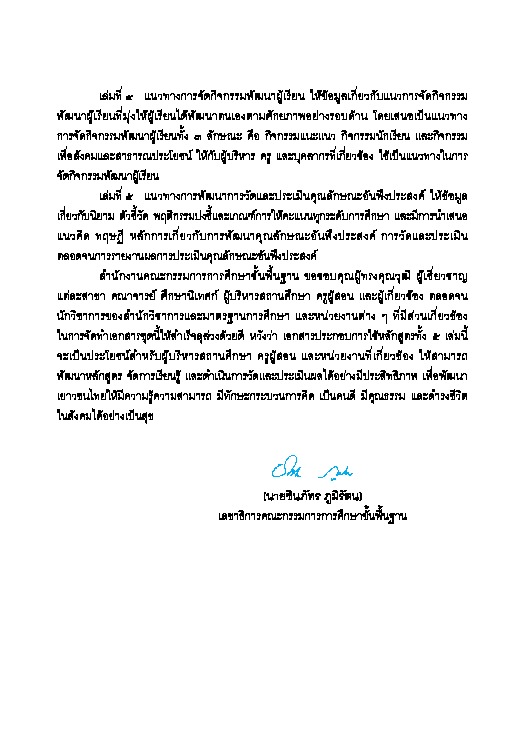 เล่มที่ ๔ แนวทางการจัดกิจกรรมพัฒนาผู้เรียน ให้ข้อมูลเกี่ยวกับแนวการจัดกิจกรรม
พัฒนาผู้เรียนที่มุ่งให้ผู้เรียนได้พัฒนาตนเองตามศักยภาพอย่างรอบด้าน โดยเสนอเป็นแนวทาง
การจัดกิจกรรมพัฒนาผู้เรียนทั้ง ๓ ลักษณะ คือ กิจกรรมแนะแนว กิจกรรมนักเรียน และกิจกรรม
เพื่อสังคมและสาธารณประโยชน์ ให้กับผู้บริหาร ครู และบุคลากรที่เกี่ยวข้อง ใช้เป็นแนวทางในการ
จัดกิจกรรมพัฒนาผู้เรียน
เล่มที่ ๕ แนวทางการพัฒนาการวัดและประเมินคุณลักษณะอันพึงประสงค์ ให้ข้อมูล
เกี่ยวกับนิยาม ตัวชี้วัด พฤติกรรมบ่งชี้และเกณฑ์การให้คะแนนทุกระดับการศึกษา และมีการนำเสนอ
แนวคิด ทฤษฎี หลักการเกี่ยวกับการพัฒนาคุณลักษณะอันพึงประสงค์ การวัดและประเมิน
ตลอดจนการรายงานผลการประเมินคุณลักษณะอันพึงประสงค์
สำนักงานคณะกรรมการการศึกษาขั้นพื้นฐาน ขอขอบคุณผู้ทรงคุณวุฒิ ผู้เชี่ยวชาญ
แต่ละสาขา คณาจารย์ ศึกษานิเทศก์ ผู้บริหารสถานศึกษา ครูผู้สอน และผู้เกี่ยวข้อง ตลอดจน
นักวิชาการของสำนักวิชาการและมาตรฐานการศึกษา และหน่วยงานต่าง ๆ ที่มีส่วนเกี่ยวข้อง
ในการจัดทำเอกสารชุดนี้ให้สำเร็จลุล่วงด้วยดี หวังว่า เอกสารประกอบการใช้หลักสูตรทั้ง ๕ เล่มนี้
จะเป็นประโยชน์สำหรับผู้บริหารสถานศึกษา ครูผู้สอน และหน่วยงานที่เกี่ยวข้อง ให้สามารถ
พัฒนาหลักสูตร จัดการเรียนรู้ และดำเนินการวัดและประเมินผลได้อย่างมีประสิทธิภาพ เพื่อพัฒนา
เยาวชนไทยให้มีความรู้ความสามารถ มีทักษะกระบวนการคิด เป็นคนดี มีคุณธรรม และดำรงชีวิต
ในสังคมได้อย่างเป็นสุข
(นายชินภัทร ภูมิรัตน)
เลขาธิการคณะกรรมการการศึกษาขั้นพื้นฐาน